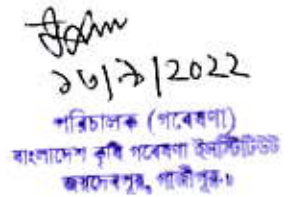 ১৩/৯/2022
পরিচালক (গবেষণা)
বাংলাদেশ কৃষি গবেষণা ইনস্টিটিউট
জয়দেবপুর, গাজীপুর।